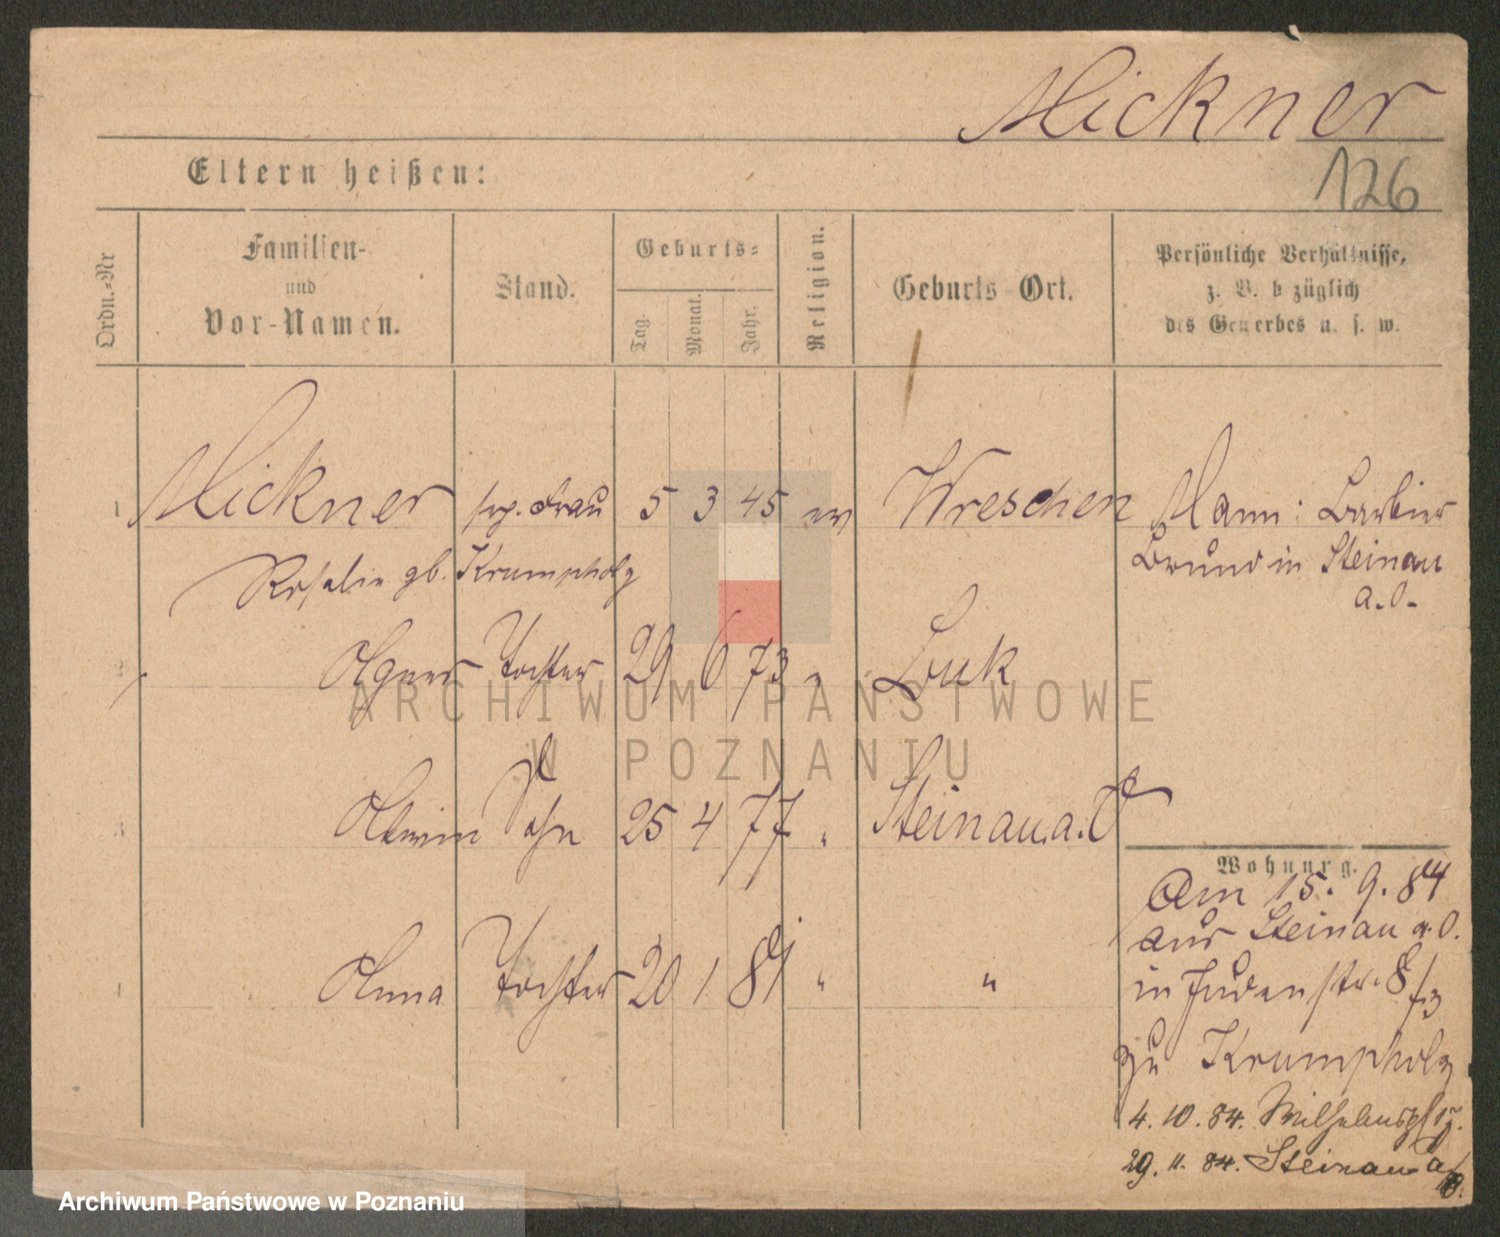 Mickner
126
Eltern heißen:
Ordn.-Nr
Familien-
und
Vor-Namen.
Stand.
Geburts-
Tag.
Monat.
Jahr.
Religion.
Geburts-Ort.
Persönliche Verhältnisse,
z. B. bezüglich
des Gewerbes u. s. w.
1 Mickner Frau 5 3 45 ev Wreschen Mann: Barbier
Rosalie gb. Krumpholz
Bruno in Steinau
a.O.
Agnes Tochter 29 6 73 " Buk
3 Alwin Sohn 25 4 77 " Steinau a. O
4 Anna Tochter 20 1 81 " "
Wohnung.
Am 15. 9. 84
aus Steinau a.O.
in Judenstr. 8
zu Krumpholz
4. 10. 84. Wilhelmspl
29. 11. 84. Steinau a/O.
ARCHIWUM PAŃSTWOWE
W POZNANIU
Archiwum Państwowe w Poznaniu